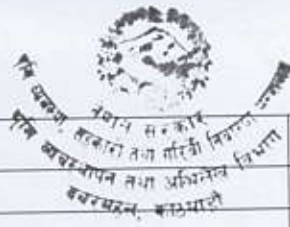 नेपाल सरकार
भूमि व्यवस्था, सहकारी तथा गरिबी निवारण मन्त्रालय
भूमि व्यवस्थापन तथा अभिलेख विभाग
बबरमहल, काठमाडौं